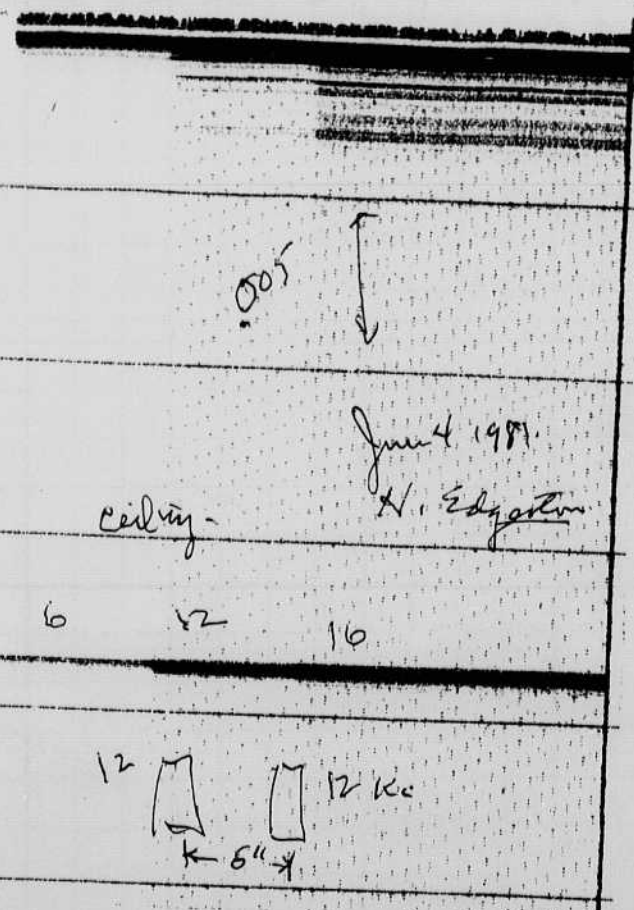 .005
June 4 1981.
H. Edgerton
ceiling-
6 12 16
12 12 Kc
6"